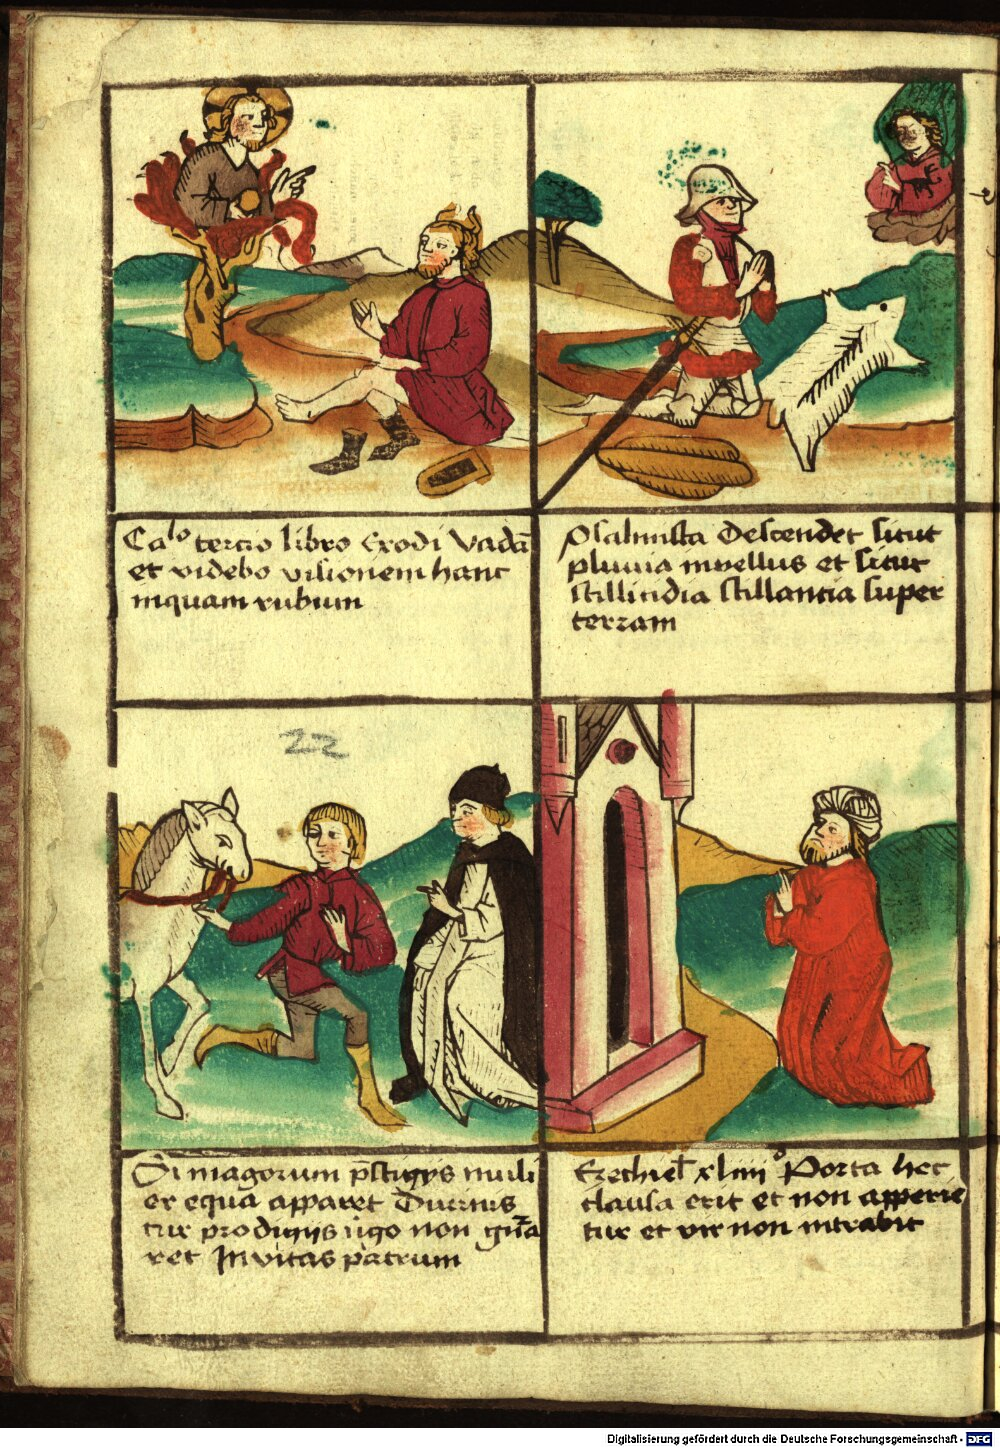 Calo tercio libro Exodi Vadā
et videbo visionem hanc
inquam rubum
Psalmista Descendet sicut
pluvia invellus et sicut
stillicidia stillancia super
terram
22
Si magorum p̄stigys muli
er equa apparet Cur
tur prodigijs v̄go non
ret Invitas patrum
Ezechiel xliiiio Porta hec
clausa erit et non apperie
tur et vir non intrabit
Digitalisierung gefördert durch die Deutsche Forschungsgemeinschaft - DFG